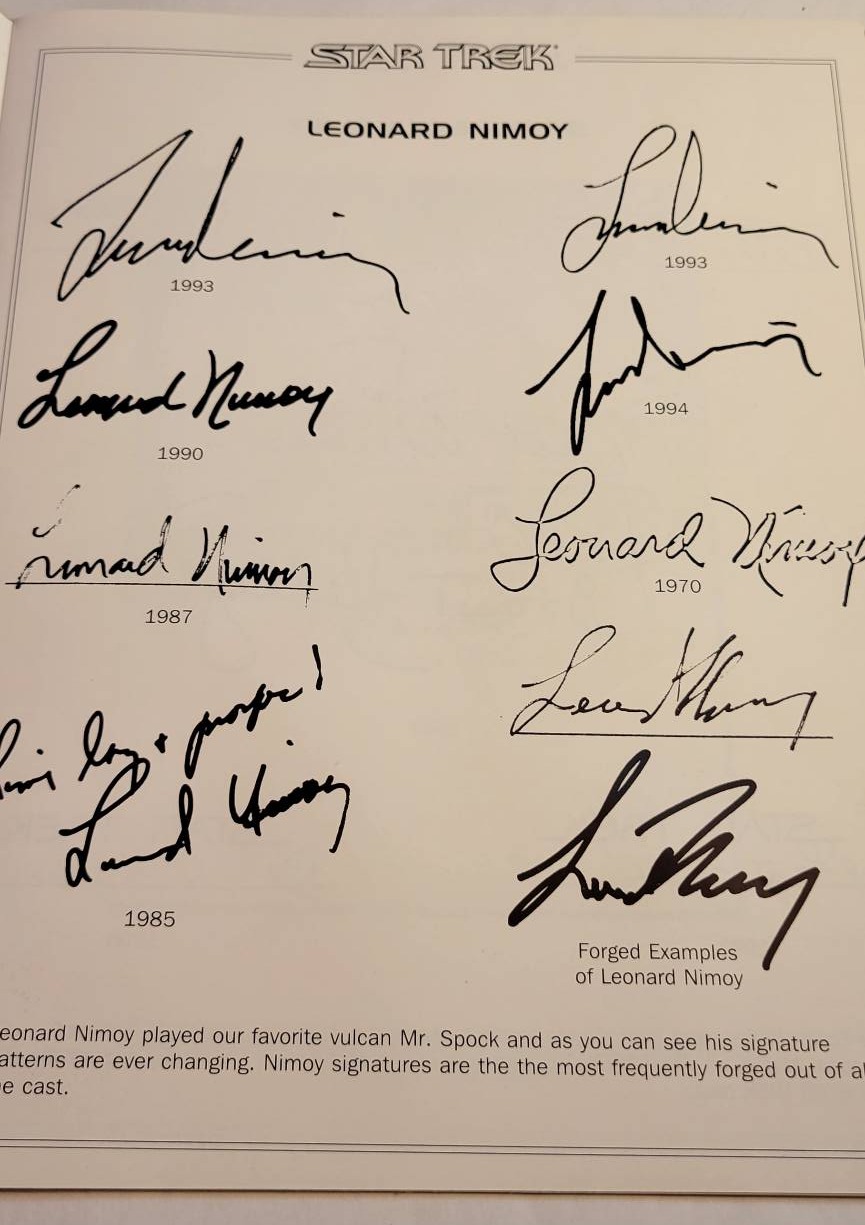 STAR TREK
LEONARD NIMOY
1993
1993
Leonard Nimoy
1990
1994
Leonard Nimoy
1987
Leonard Nimoy
1970
long + prosper!
Leonard Nimoy
1985
Forged Examples
of Leonard Nimoy
eonard Nimoy played our favorite vulcan Mr. Spock and as you can see his signature
atterns are ever changing. Nimoy signatures are the the most frequently forged out of al
e cast.